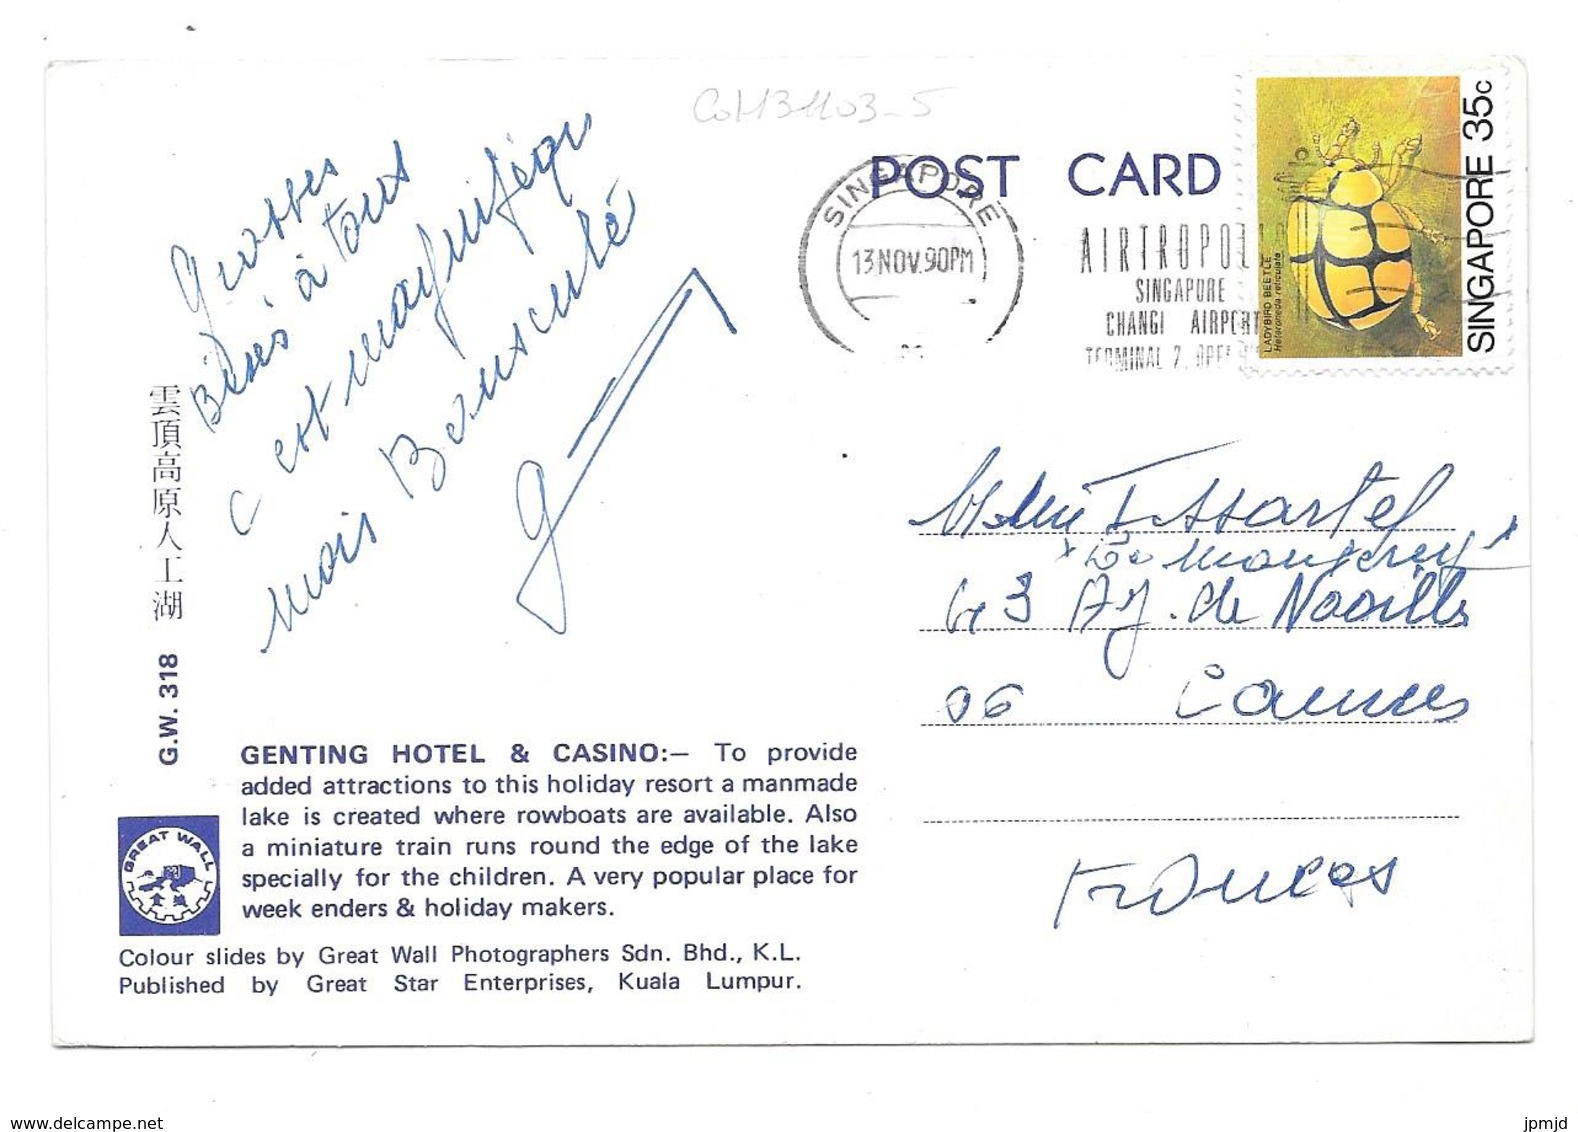 Grosses
Bises à tous
c est magnifique
mais Bousculé
G
雲頂高原人工湖
G.W. 318
GREAT WALL
GENTING HOTEL & CASINO:— To provide
added attractions to this holiday resort a manmade
lake is created where rowboats are available. Also
a miniature train runs round the edge of the lake
specially for the children. A very popular place for
week enders & holiday makers.
Colour slides by Great Wall Photographers Sdn. Bhd., K.L.
Published by Great Star Enterprises, Kuala Lumpur.
POST CARD
SINGAPORE
13 NOV. 90 PM
AIRTROPOLIS
SINGAPORE
CHANGI AIRPORT
TERMINAL 2.
LADYBIRD BEETLE
Heteroneda reticulata
SINGAPORE 35c
43 Av. de Noailles
06 Cannes
France
www.delcampe.net
jpmjd